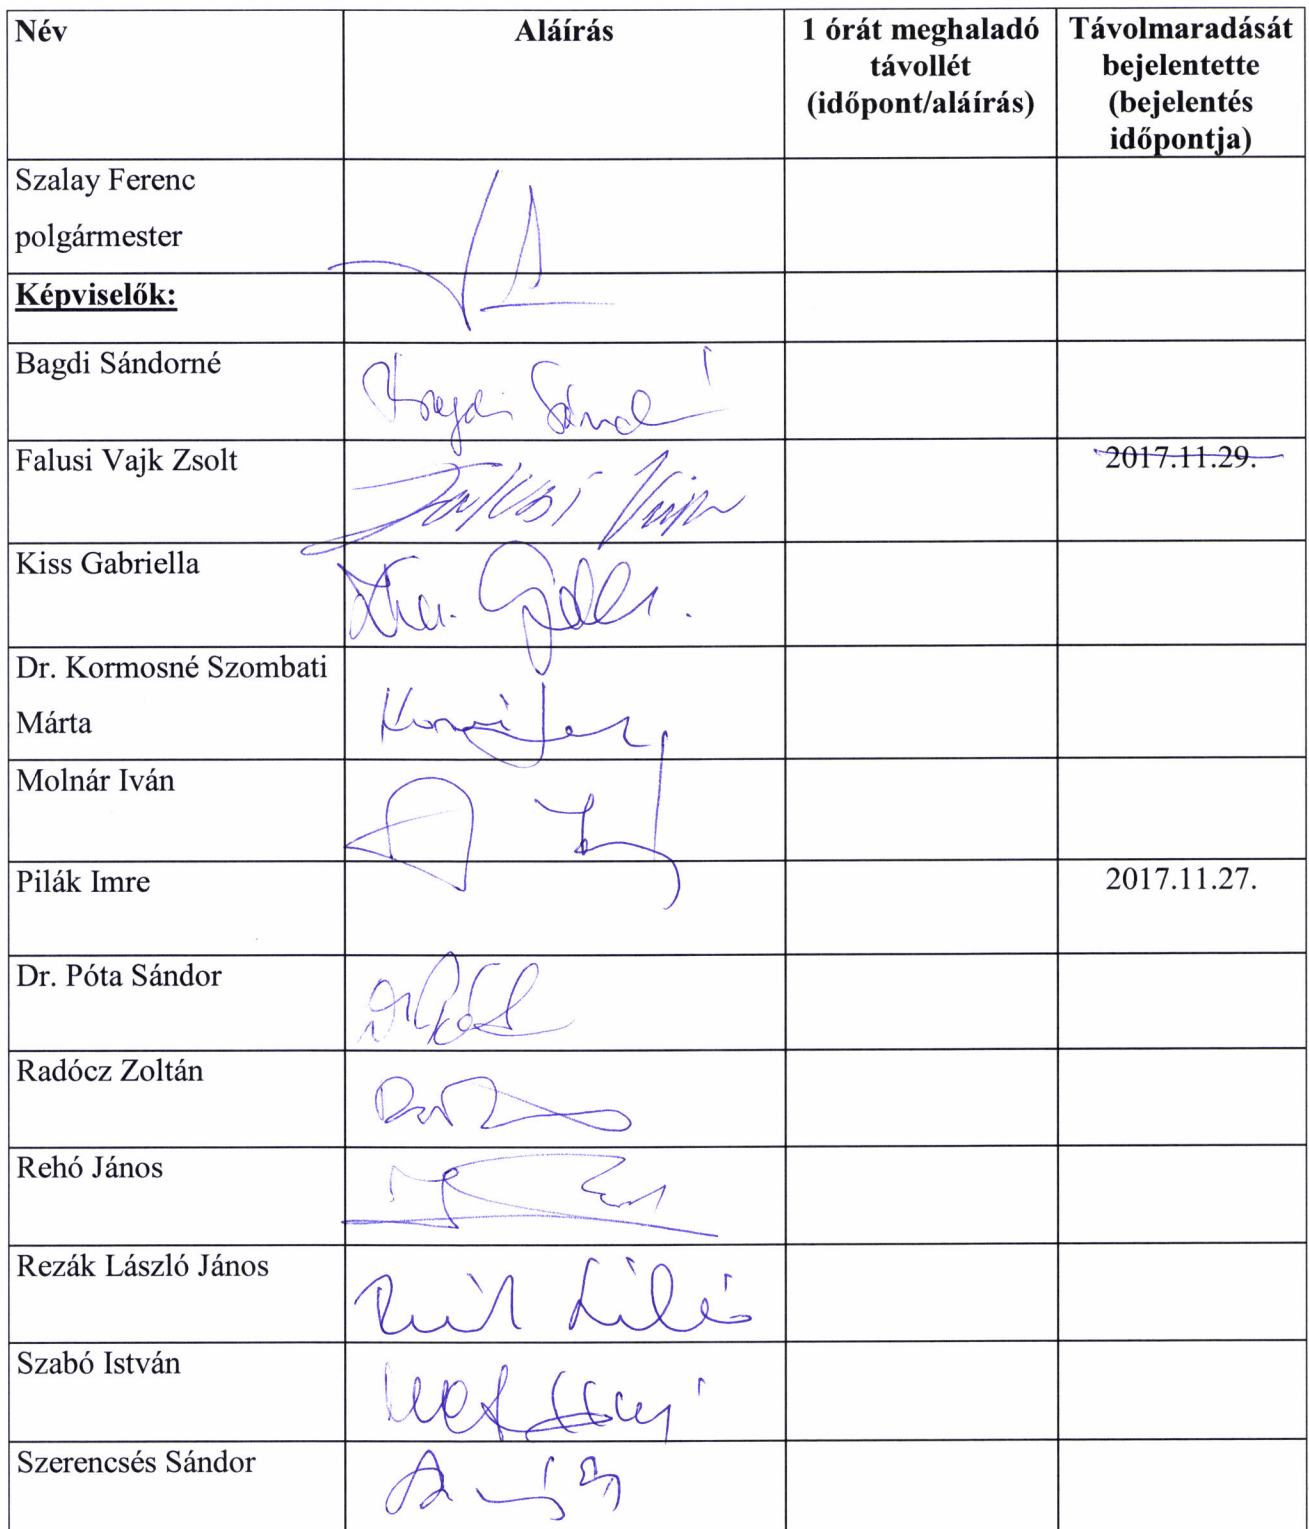 Név
Aláírás
1 órát meghaladó
távollét
(időpont/aláírás)
Távolmaradását
bejelentette
(bejelentés
időpontja)
Szalay Ferenc
polgármester
Képviselők:
Bagdi Sándorné
Falusi Vajk Zsolt
2017.11.29.
Kiss Gabriella
Dr. Kormosné Szombati
Márta
Molnár Iván
Pilák Imre
2017.11.27.
Dr. Póta Sándor
Radócz Zoltán
Rehó János
Rezák László János
Szabó István
Szerencsés Sándor